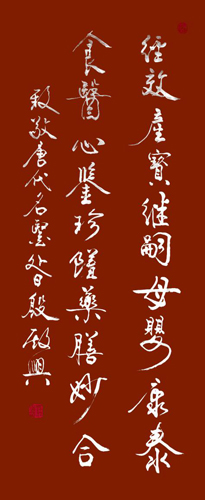 經效產寶继嗣母嬰康泰
食醫心鑒珍饈藥膳妙合
致敬唐代名醫昝殷 啟興